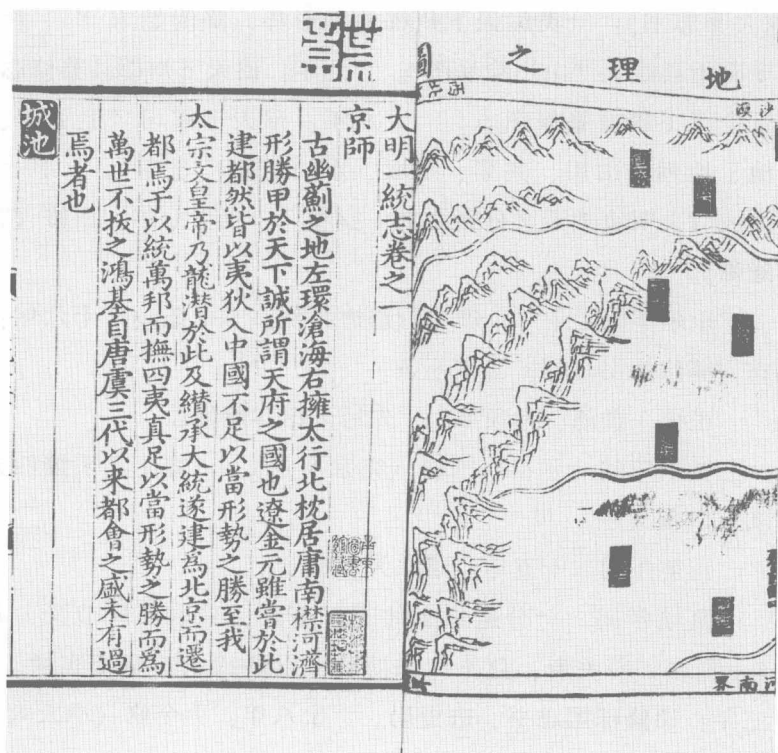 地理之圖
大明一統志卷之一
京師
古幽薊之地左環滄海右擁太行北枕居庸南襟河濟
形勝甲於天下誠所謂天府之國也遼金元雖嘗於此
建都然皆以夷狄入中國不足以當形勢之勝至我
太宗文皇帝乃龍潛於此及纘承大統遂建為北京而遷
都焉于以統萬邦而撫四夷真足以當形勢之勝而為
萬世不拔之鴻基自唐虞三代以來都會之盛未有過
焉者也
城池
河南界